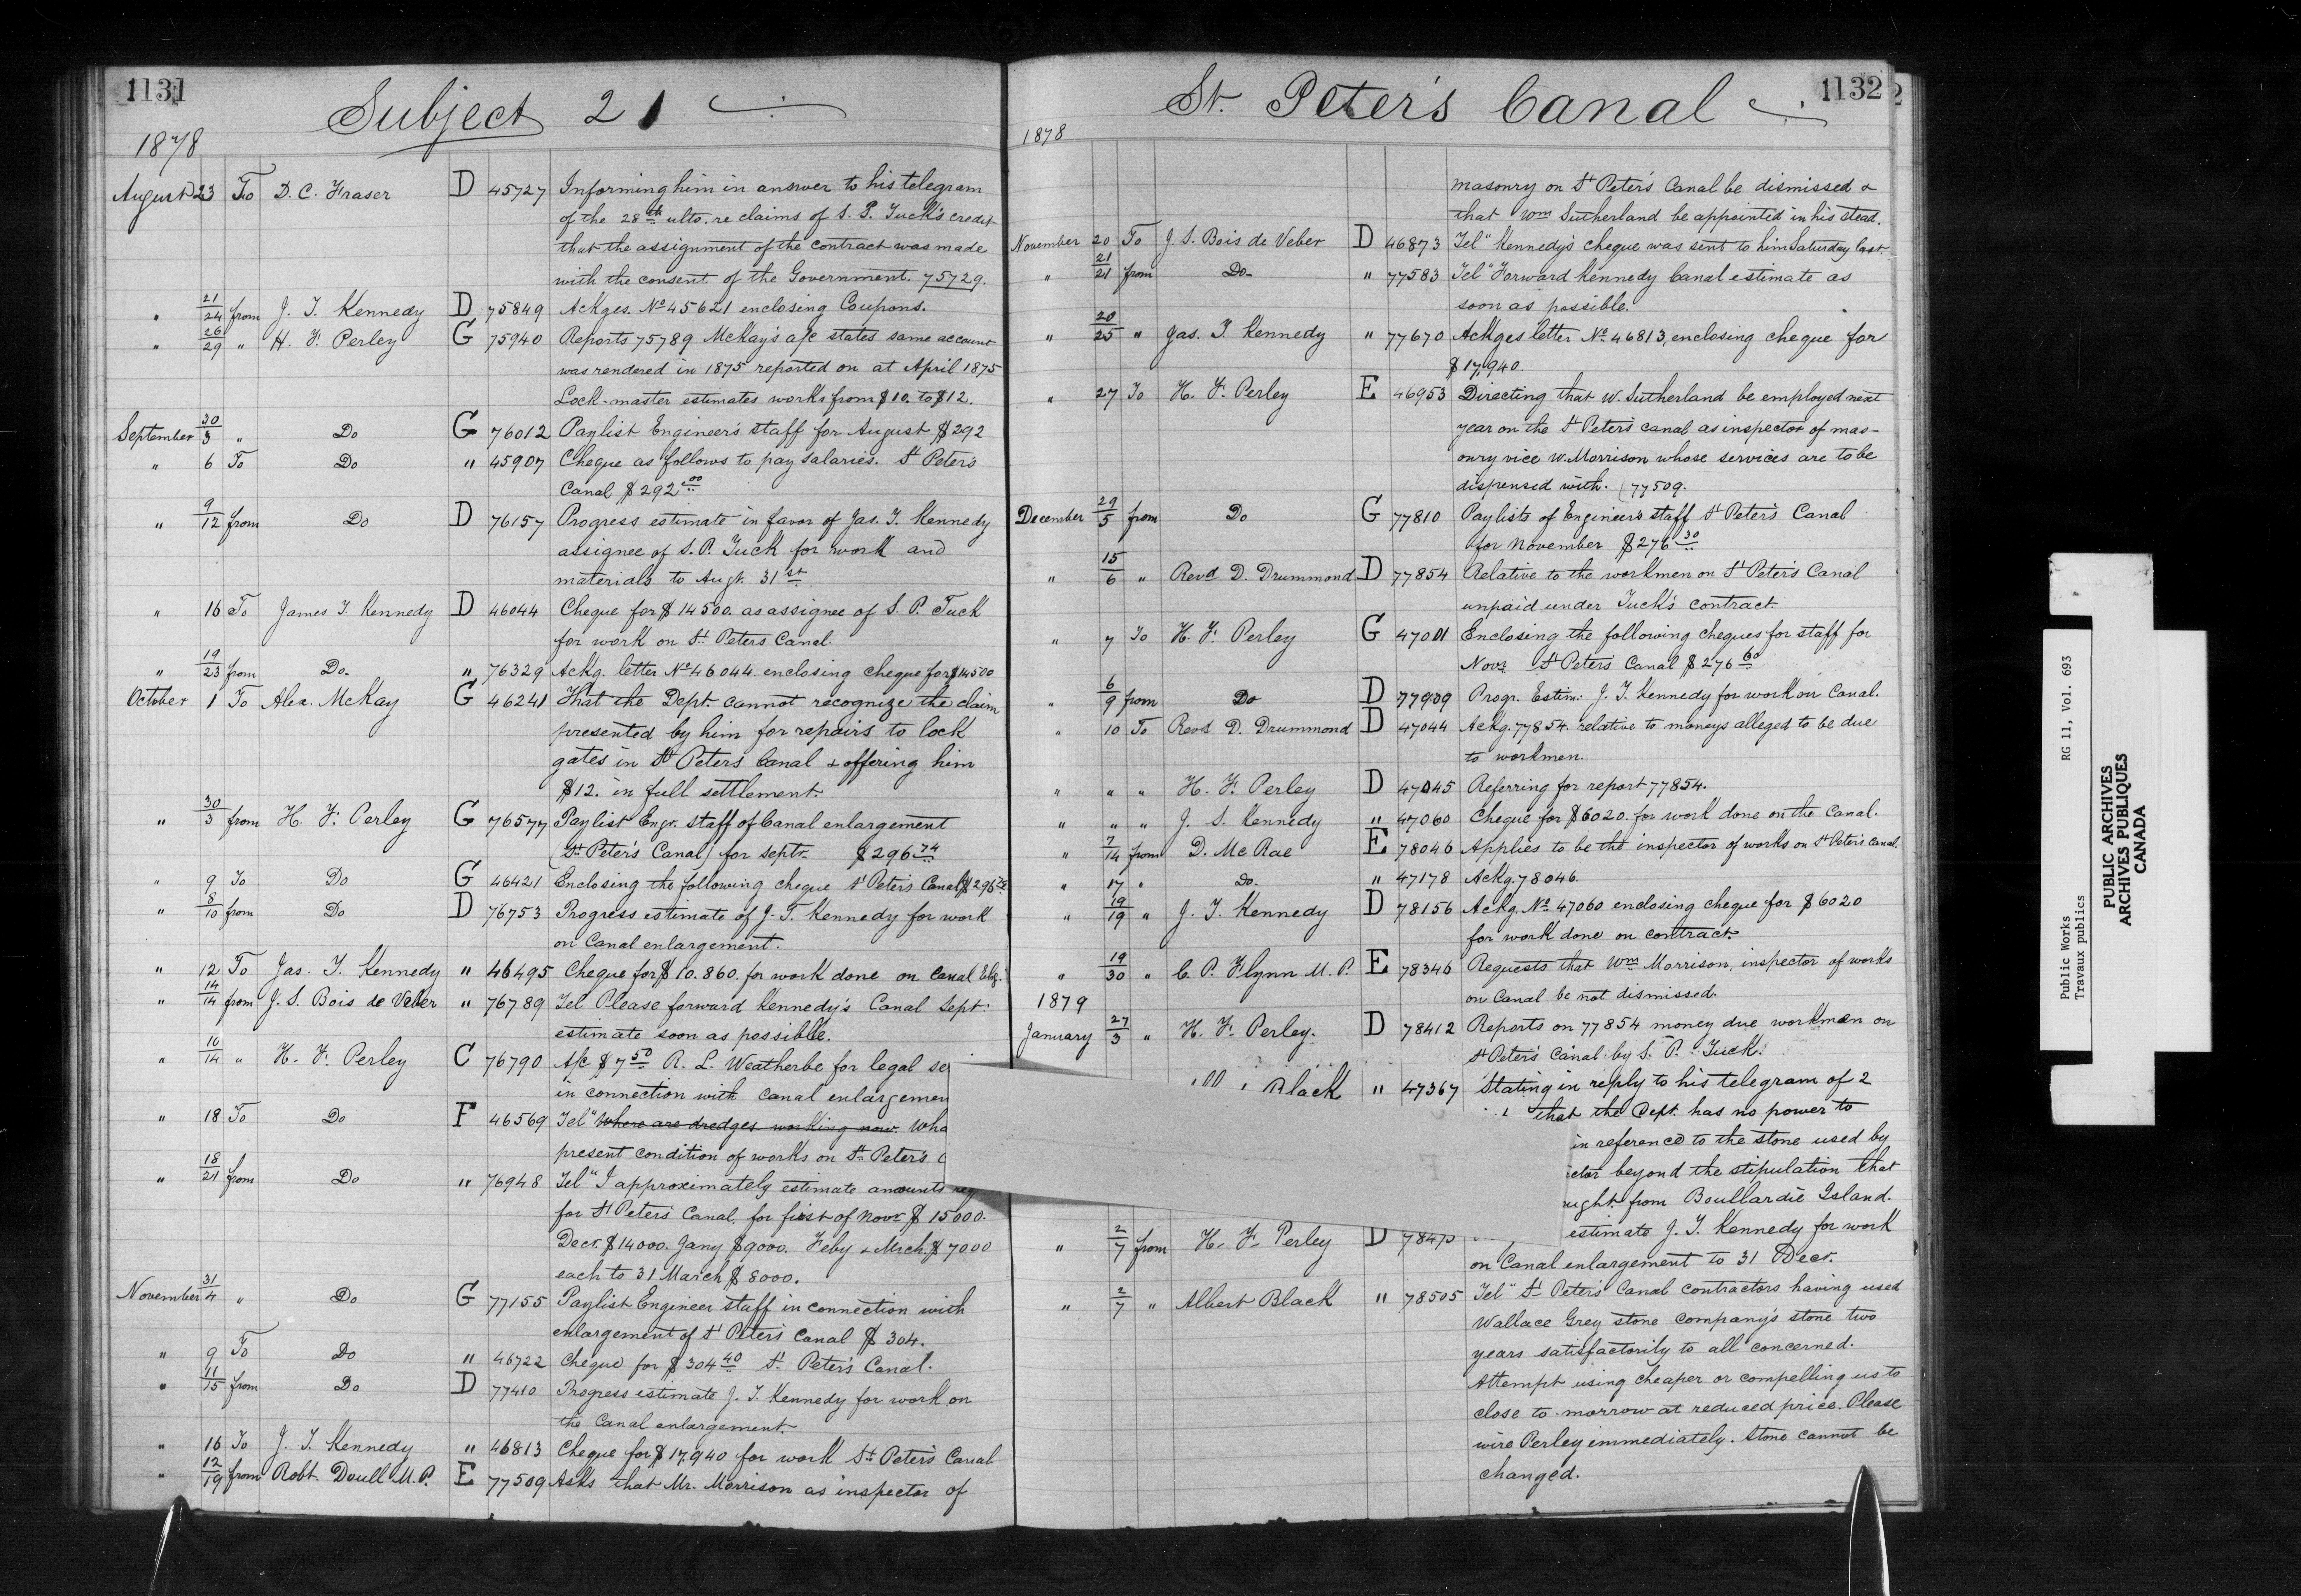 1131
Subject 21
1878
August 23 To D. C. Fraser D 45727 Informing him in answer to his telegram
of the 28th ulto. re claims of S. P. Tuck's credit
that the assignment of the contract was made
with the consent of the Government. 75729.
" 21/24 from J. T. Kennedy D 75849 Ackges. No 45621 enclosing Coupons.
" 26/29 " H. F. Perley G 75940 Reports 75789 McKay's a/c states same account
was rendered in 1875 reported on at April 1875
Lock-master estimates works from $10. to $12.
September 30/3 " Do G 76012 Paylist Engineer's staff for August $292
" 6 To Do " 45907 Cheque as follows to pay salaries. St Peter's
Canal $292.00
" 9/12 from Do D 76157 Progress estimate in favor of Jas. T. Kennedy
assignee of S. P. Tuck for work and
materials to Augt. 31st
" 16 To James T. Kennedy D 46044 Cheque for $14500. as assignee of S. P. Tuck
for work on St. Peters Canal.
" 19/23 from Do. " 76329 Ackg. letter No 46044 enclosing cheque for $14500
October 1 To Alex. McKay G 46241 That the Dept. cannot recognize the claim
presented by him for repairs to lock
gates in St Peters Canal & offering him
$12. in full settlement.
" 30/3 from H. F. Perley G 76577 Paylist Engr. staff of Canal enlargement
(St Peter's Canal) for Septr. $296.74
" 9 To Do G 46421 Enclosing the following cheque St Peter's Canal $296.74
" 8/10 from Do D 76753 Progress estimate of J. T. Kennedy for work
on Canal enlargement.
" 12 To Jas. T. Kennedy " 46495 Cheque for $10.860. for work done on Canal Elg.
" 14/14 from J. S. Bois de Veber " 76789 Tel Please forward Kennedy's Canal Sept.
estimate soon as possible.
" 10/14 " H. F. Perley C 76790 A/c $7.50 R. L. Weatherbe for legal se
in connection with Canal enlargemen
" 18 To Do F 46569 Tel " Where are dredges working now. Wha
present condition of works on St. Peter's C
" 18/21 from Do " 76948 Tel " I approximately estimate amounts req
for St Peter's Canal, for first of Novr $15000.
Decr. $14000. Jany $9000. Feby & Mrch. $7000
each to 31 March $8000.
November 31/4 " Do G 77155 Paylist Engineer staff in connection with
enlargement of St Peter's Canal $304.
" 9 To Do " 46722 Cheque for $304.40 St. Peter's Canal.
" 11/15 from Do D 77410 Progress estimate J. T. Kennedy for work on
the Canal enlargement.
" 16 To J. T. Kennedy " 46813 Cheque for $17.940 for work St. Peter's Canal
" 12/19 from Robt. Doull M.P. E 77509 Asks that Mr. Morrison as inspector of
1132
St. Peter's Canal
1878
masonry on St Peter's Canal be dismissed &
that Wm Sutherland be appointed in his stead.
November 20 To J. S. Bois de Veber D 46873 Tel " Kennedy's cheque was sent to him Saturday last.
" 21/21 from Do " 77583 Tel " Forward Kennedy Canal estimate as
soon as possible.
" 20/25 " Jas. T. Kennedy " 77670 Ackges letter No 46813, enclosing cheque for
$17,940.
" 27 To H. F. Perley E 46953 Directing that W. Sutherland be employed next
year on the St Peter's canal as inspector of mas-
onry vice W. Morrison whose services are to be
dispensed with. (77509.
December 29/5 from Do G 77810 Paylists of Engineer's staff St Peter's Canal
for November $276.30
" 15/6 " Revd D. Drummond D 77854 Relative to the workmen on St Peter's Canal
unpaid under Tuck's contract.
" 7 To H. F. Perley G 47001 Enclosing the following cheques for staff for
Novr. St Peter's Canal $276.60
" 6/9 from Do D 77909 Progr. Estim: J. T. Kennedy for work on Canal.
" 10 To Revd D. Drummond D 47044 Ackg. 77854. relative to moneys alleged to be due
to workmen.
" " " H. F. Perley D 47045 Referring for report 77854.
" " " J. S. Kennedy " 47060 Cheque for $6020. for work done on the Canal.
" 7/14 from D. McRae E 78046 Applies to be the inspector of works on St Peter's Canal.
" 17 " Do. " 47178 Ackg. 78046.
" 19/19 " J. T. Kennedy D 78156 Ackg. No 47060 enclosing cheque for $6020
for work done on contract.
" 19/30 " C. P. Flynn M.P. E 78346 Requests that Wm Morrison, inspector of works
on Canal be not dismissed.
1879
January 27/3 " H. F. Perley. D 78412 Reports on 77854 money due workmen on
St Peter's Canal by S. P. Tuck.
Black " 47367 Stating in reply to his telegram of 2
that the Dept. has no power to
in reference to the stone used by
ctor beyond the stipulation that
ught from Boullardie Island.
" 2/7 from H. F. Perley D estimate J. T. Kennedy for work
on Canal enlargement to 31 Decr.
" 2/7 " Albert Black " 78505 Tel " St. Peter's Canal contractors having used
Wallace Grey stone company's stone two
years satisfactorily to all concerned.
Attempt using cheaper or compelling us to
close to-morrow at reduced price. Please
wire Perley immediately. Stone cannot be
changed.
Public Works RG 11, Vol. 693
Travaux publics
PUBLIC ARCHIVES
ARCHIVES PUBLIQUES
CANADA